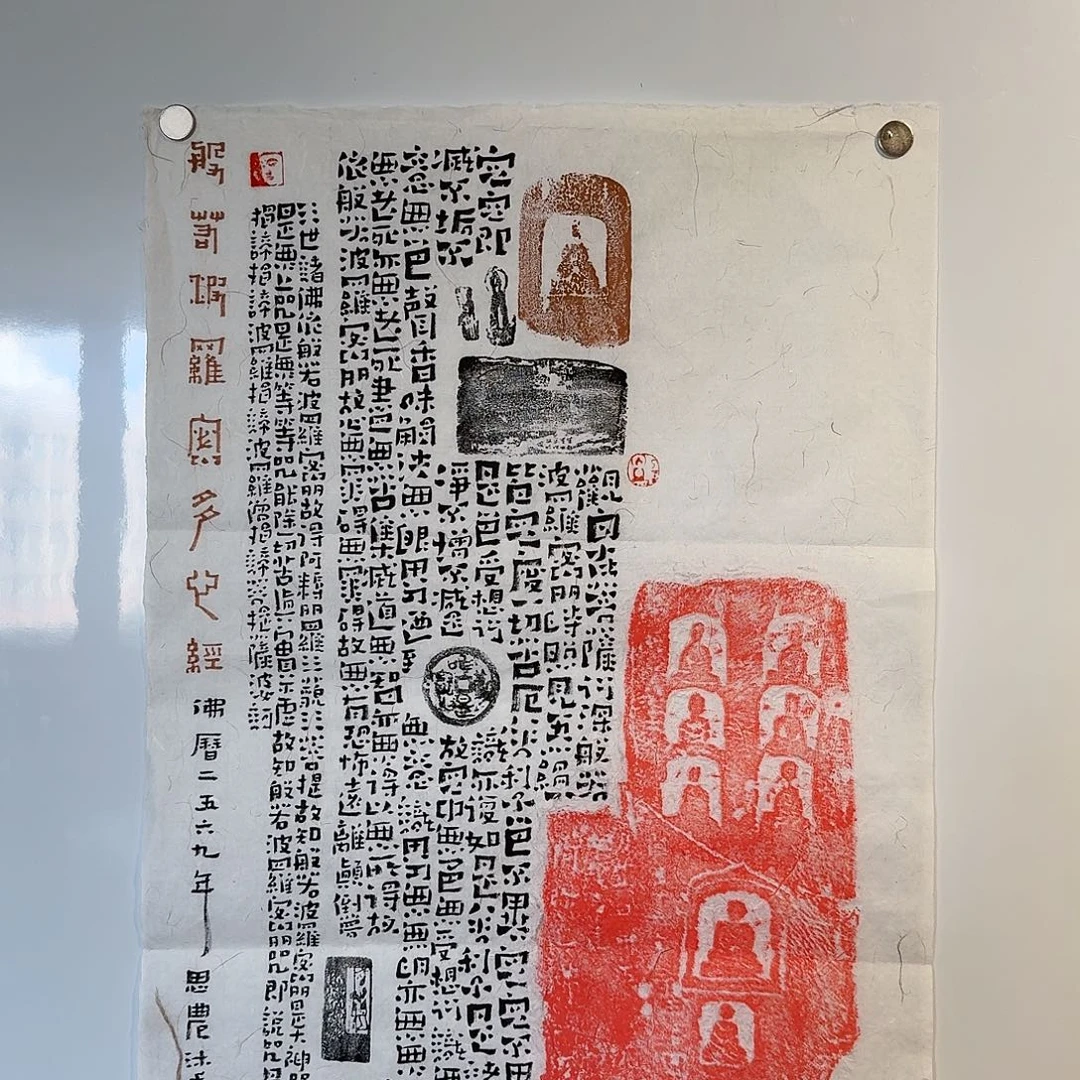 觀自在菩薩行深般若
波羅蜜多時照見五蘊
皆空度一切苦厄舍利子色不異空空不異
空空即是色受想行識亦復如是舍利子是諸
滅不垢不淨不增不減是故空中無色無受想行識
意無色聲香味觸法無眼界乃至無意識界乃至無無明亦無無
無老死亦無老死盡無苦集滅道無智亦無得以無所得故
依般若波羅蜜多故心無罣礙無罣礙故無有恐怖遠離顛倒夢
三世諸佛依般若波羅蜜多故得阿耨多羅三藐三菩提故知般若波羅蜜多是大神咒
是無上咒是無等等咒能除一切苦真實不虛故知般若波羅蜜多咒即說咒
揭諦揭諦波羅揭諦波羅僧揭諦菩提薩婆訶
般若波羅蜜多心經
佛曆二五六九年 思農沐